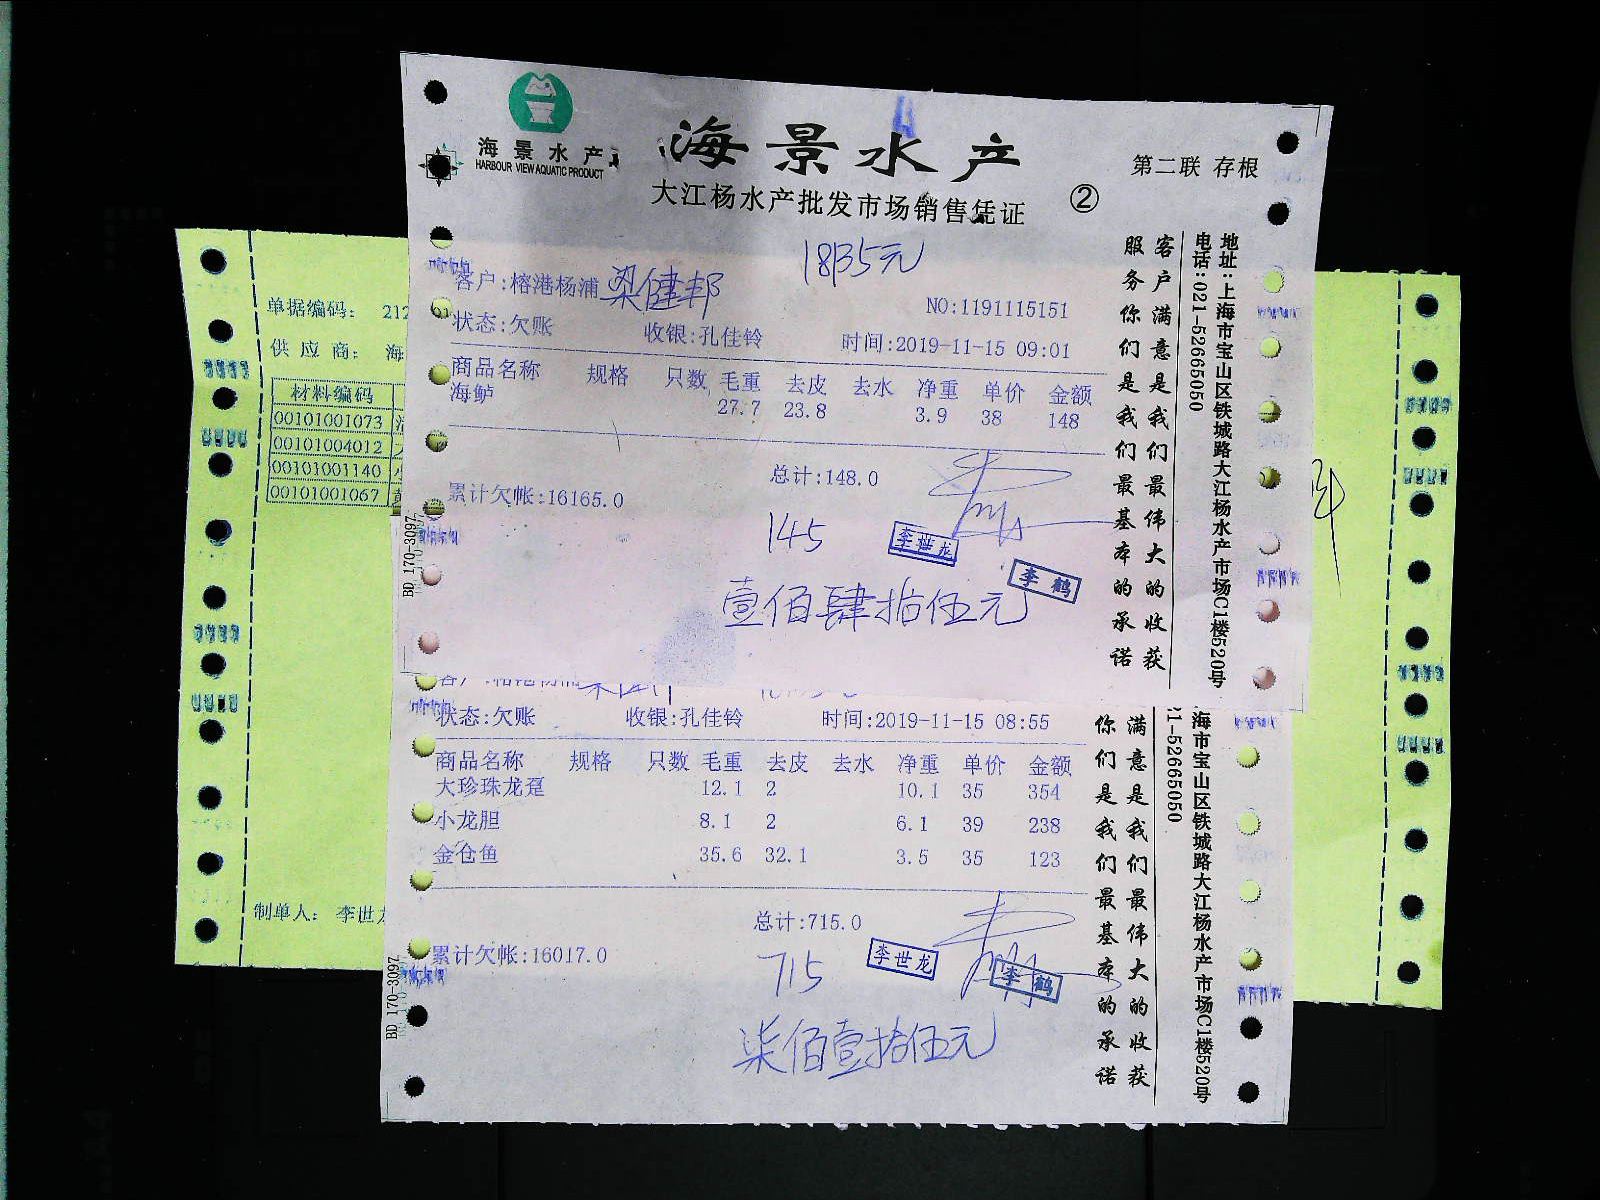 海景水产
HARBOUR VIEW AQUATIC PRODUCT
海景水产
第二联 存根
大江杨水产批发市场销售凭证 ②
客户:榕港杨浦 梁健邦
NO:1191115151
状态:欠账 收银:孔佳铃 时间:2019-11-15 09:01
商品名称 规格 只数 毛重 去皮 去水 净重 单价 金额
海鲈 27.7 23.8 3.9 38 148
总计:148.0
累计欠帐:16165.0
145
李世龙
李鹤
壹佰肆拾伍元
BD 170-3097
客户满意是我们最伟大的收获
服务你们是我们最基本的承诺
地址:上海市宝山区铁城路大江杨水产市场C1楼520号
电话:021-52665050
状态:欠账 收银:孔佳铃 时间:2019-11-15 08:55
商品名称 规格 只数 毛重 去皮 去水 净重 单价 金额
大珍珠龙趸 12.1 2 10.1 35 354
小龙胆 8.1 2 6.1 39 238
金仓鱼 35.6 32.1 3.5 35 123
总计:715.0
累计欠帐:16017.0
715
李世龙
李鹤
柒佰壹拾伍元
BD 170-3097
满意是我们最伟大的收获
你们是我们最基本的承诺
海市宝山区铁城路大江杨水产市场C1楼520号
21-52665050
单据编码: 212
供应商: 海
材料编码
00101001073
00101004012
00101001140
00101001067
制单人: 李世